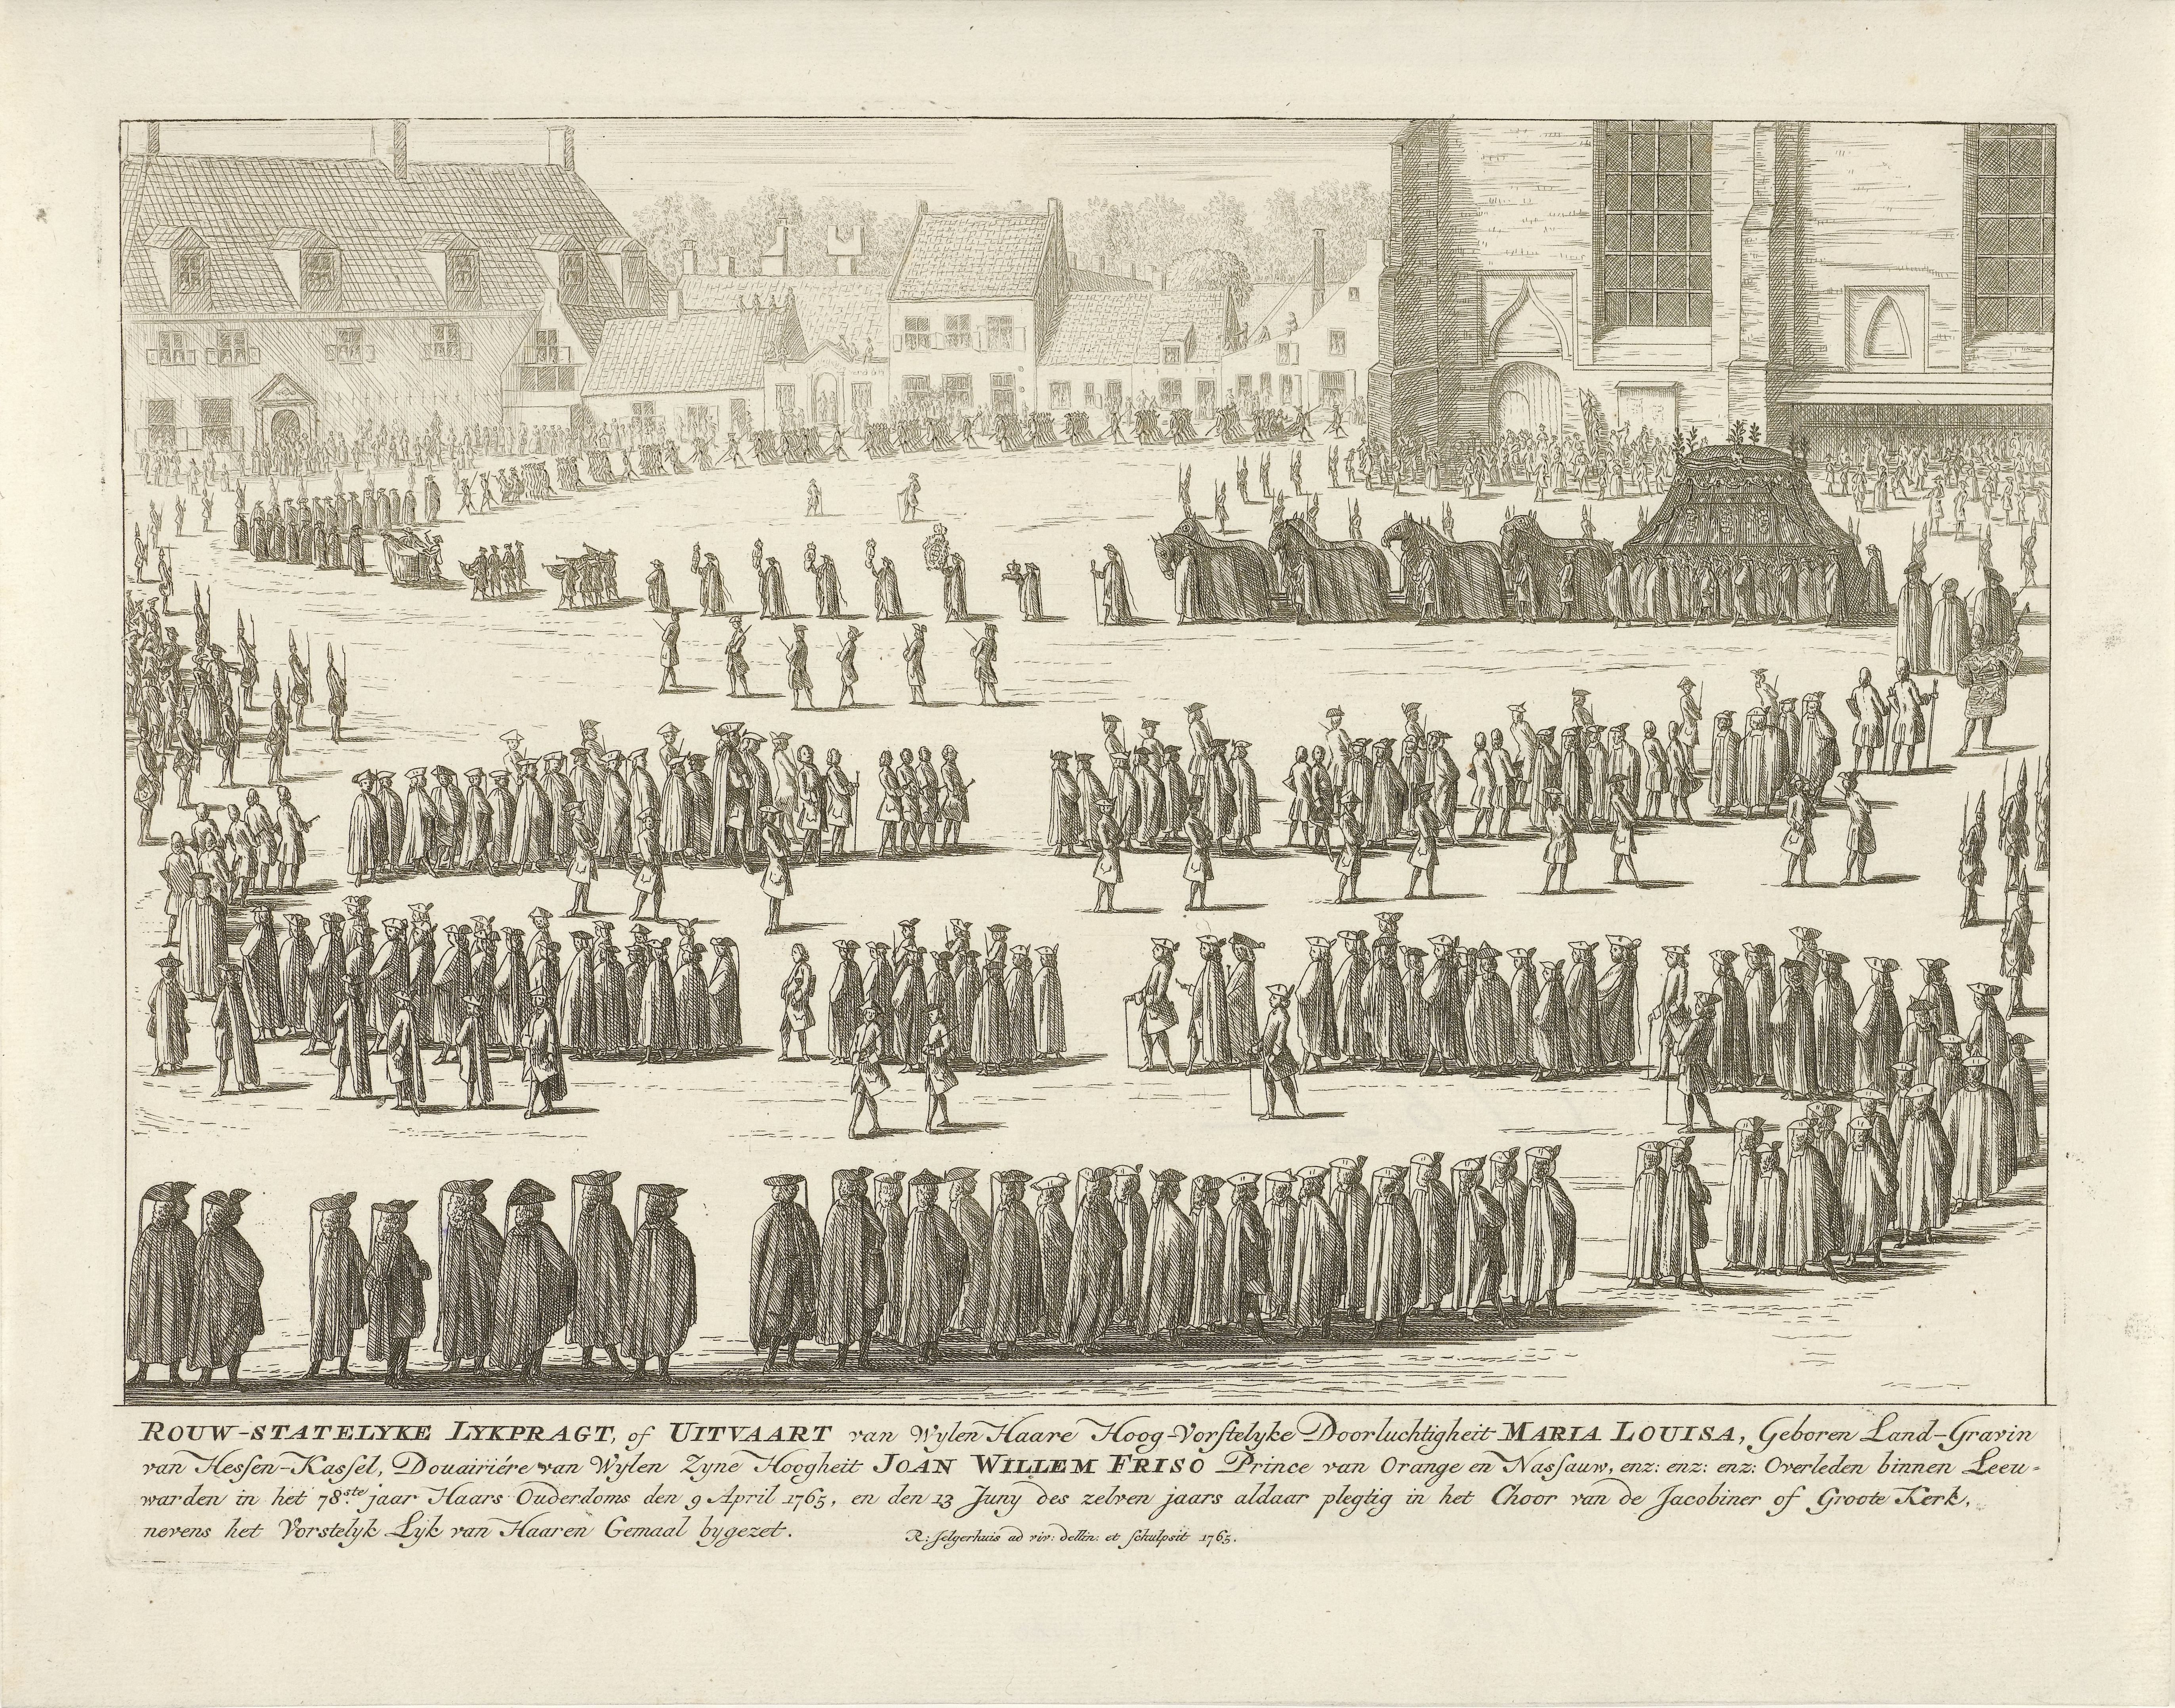 ROUW-STATELYKE LYKPRAGT, of UITVAART van Wylen Haare Hoog-Vorstelyke Doorluchtigheit MARIA LOUISA, Geboren Land-Gravin
van Hessen-Kassel, Douairiére van Wylen Zyne Hoogheit JOAN WILLEM FRISO Prince van Orange en Nassauw, enz: enz: enz: Overleden binnen Leeu-
warden in het 78.ste jaar Haars Ouderdoms den 9 April 1765, en den 13 Juny des zelven jaars aldaar plegtig in het Choor van de Jacobiner of Groote Kerk,
nevens het Vorstelyk Lyk van Haaren Gemaal bygezet.
R: Jelgerhuis ad viv: dellin: et schulpsit 1765.